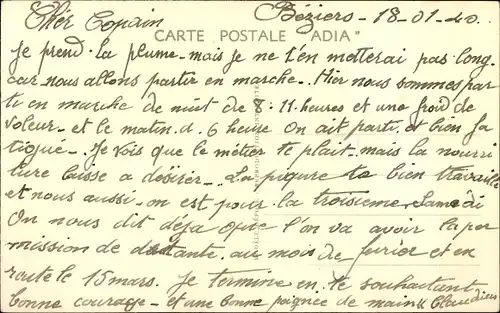 Chér Copain Béziers - 18-01-40
CARTE POSTALE "ADIA"
je prend la plume mais je ne t'en metterai pas long.
car nous allons partir en marche. Hier nous sommes par
ti en marche de nuit de 8:11 heures et une froid de
voleur. et le matin d. 6 heure On ait parti et bien fa
tigué. Je vois que le métier te plait mais la nourri
ture laisse a désirer. La piqure te bien travaille
et nous aussi on est pour la troisieme Samedi
On nous dit déja que l'on va avoir la per
mission de détante. au mois de fevrier et en
route le 15 mars. Je termine en te souhaitant
bonne courage et une bonne poignee de main Claudius